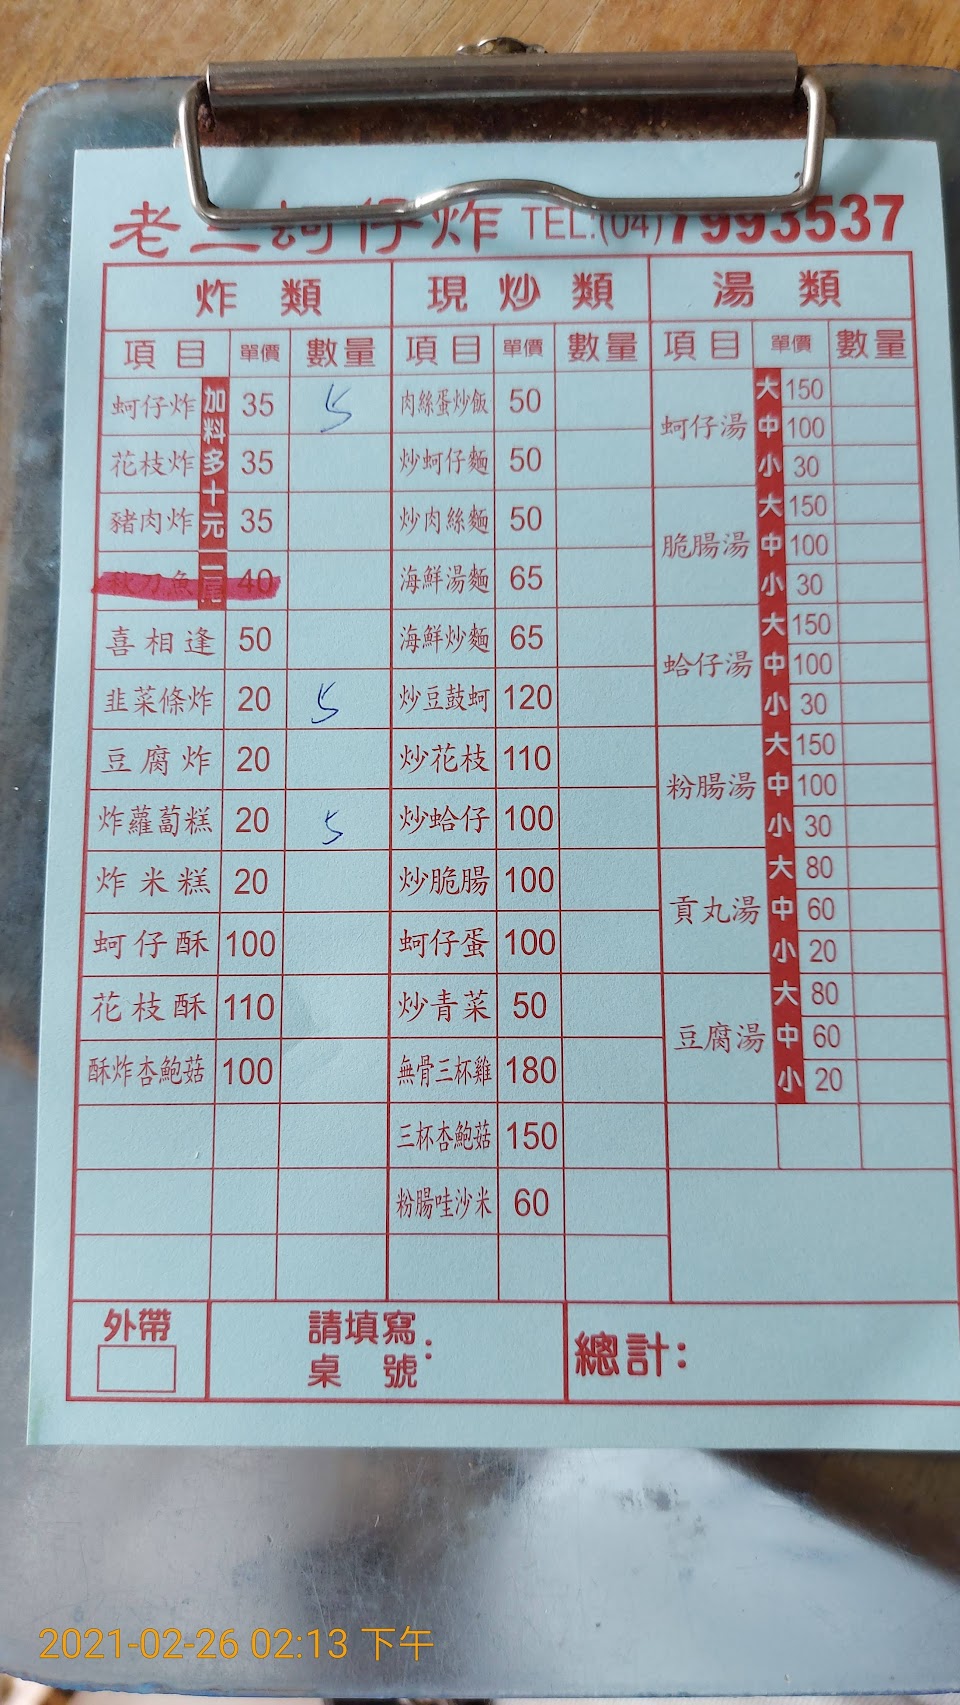 老三蚵仔炸 TEL:(04)7993537
炸類 現炒類 湯類
項目 單價 數量 項目 單價 數量 項目 單價 數量
加料多十元
一尾
蚵仔炸 35 5 肉絲蛋炒飯 50
花枝炸 35 炒蚵仔麵 50
豬肉炸 35 炒肉絲麵 50
秋刀魚 40 海鮮湯麵 65
喜相逢 50 海鮮炒麵 65
韭菜條炸 20 5 炒豆鼓蚵 120
豆腐炸 20 炒花枝 110
炸蘿蔔糕 20 5 炒蛤仔 100
炸米糕 20 炒脆腸 100
蚵仔酥 100 蚵仔蛋 100
花枝酥 110 炒青菜 50
酥炸杏鮑菇 100 無骨三杯雞 180
三杯杏鮑菇 150
粉腸哇沙米 60
蚵仔湯 大 150
中 100
小 30
脆腸湯 大 150
中 100
小 30
蛤仔湯 大 150
中 100
小 30
粉腸湯 大 150
中 100
小 30
貢丸湯 大 80
中 60
小 20
豆腐湯 大 80
中 60
小 20
外帶 請填寫桌號: 總計:
2021-02-26 02:13 下午